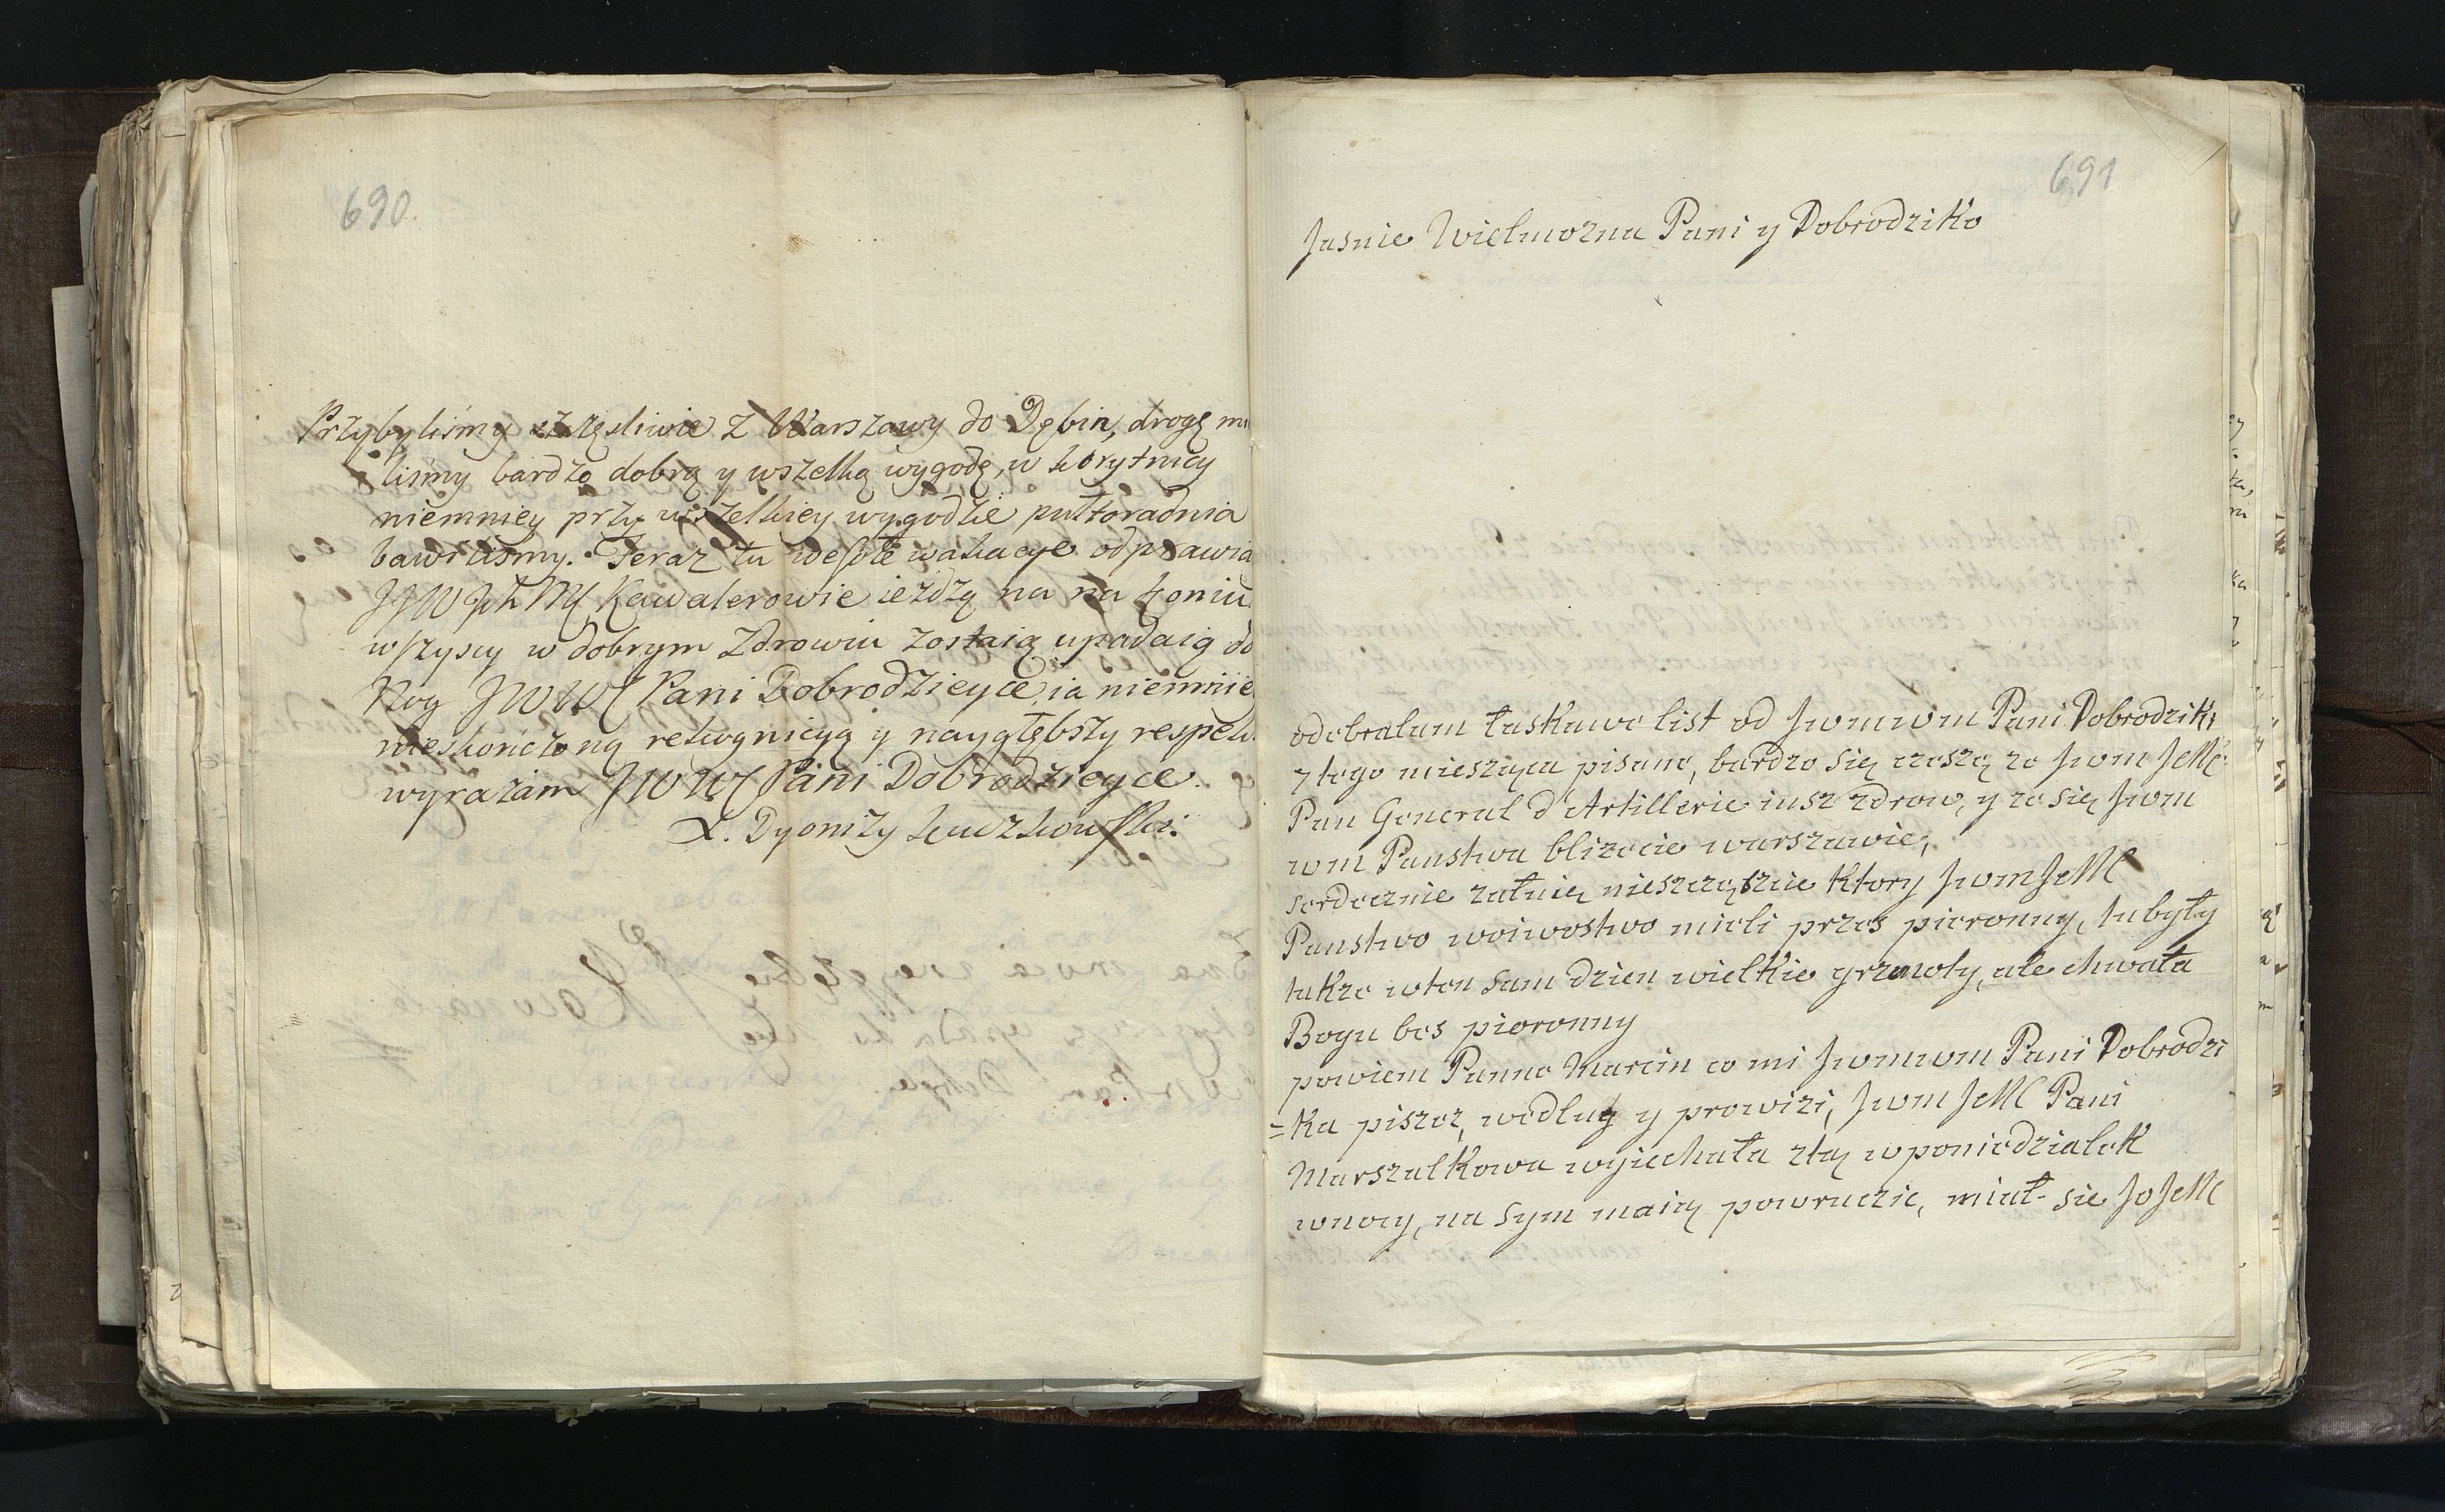 690
Przybyliśmy szczęsliwie z Warszawy do Dębin, drogę mi
liśmy bardzo dobrą y wszelką wygodę, w Korytnicy
niemniey przy wszelkiey wygodzie pułtoradnia
bawiliśmy. Teraz tu wesołe wakacye odprawia
Kawalerowie ieżdżą na na koniu
wszyscy w dobrym zdrowiu zostaią upadaią do
Nog JWW Pani Dobrodzieyce, ia niemnie
nieskończoną rekognicyą y naygłębszy respek
wyrażam JWW Pani Dobrodzieyce.
X. Dyonizy
691
Jasnie Wielmozna Pani y Dobrodziko
odebralam łaskawe list od Jwmwm Pani Dobrodziki
7 tego miesząca pisane, bardzo się czeszę ze Jwm JeMC
Pan General d'Artillerie iusz zdrow, y ze się Jwm
wm Panstwa blizecie warszawie,
serdecznie załuię nieszczęszcie ktory Jwm JeMC
Panstwo woiwostwo mieli przes pieronny, tu były
takze wten sam dzien wielkie grzmoty, ale chwała
Bogu bes pioronny
powiem Panne Marcin co mi Jwmwm Pani Dobrodzi
=ka piszez, wedlug y prowizi, Jwm JeMC Pani
Marszalkowa wyiechała ztąz wponiedzialek
wnocy, na sym maią powruczic, miał sie JoJeMC